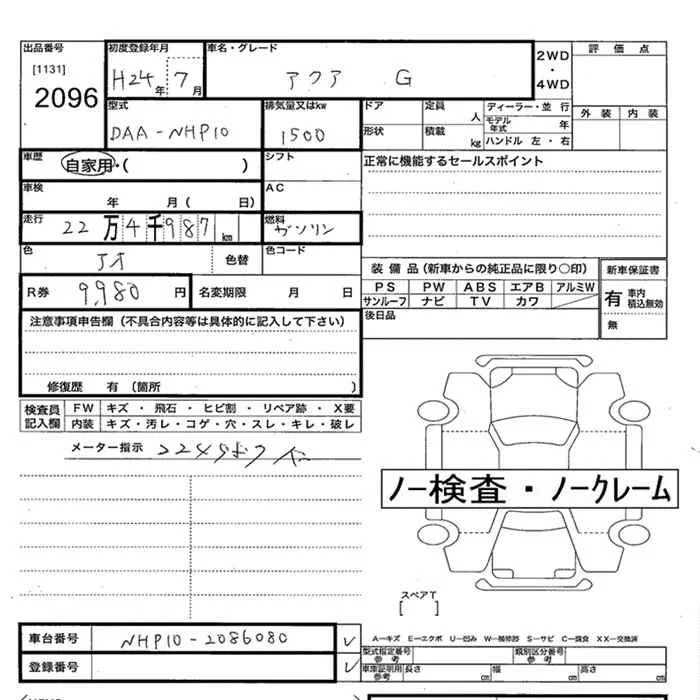 出品番号 初度登録年月 車名・グレード 2WD 評価点
[1131] H24年 7月 アクア G ・
2096 4WD
型式 排気量又はkw ドア 定員 人 ディーラー・並行 外装 内装
DAA-NHP10 1500 モデル年式 年
形状 積載 kg ハンドル 左・右
車歴 自家用・( ) シフト 正常に機能するセールスポイント
車検 年 月( 日) AC
走行 22万4千987km 燃料 ガソリン
色 アオ 色替 色コード
装備品(新車からの純正品に限り○印) 新車保証書
R券 9,980円 名変期限 月 日 PS PW ABS エアB アルミW 有 車内積込無効
サンルーフ ナビ TV カワ
注意事項申告欄(不具合内容等は具体的に記入して下さい) 後日品 無
修復歴 有(箇所 )
検査員記入欄 FW キズ・飛石・ヒビ割・リペア跡・X要
内装 キズ・汚レ・コゲ・穴・スレ・キレ・破レ
メーター指示
ノー検査・ノークレーム
スペアT
[ ]
車台番号 NHP10-2086080 A−キズ E−エクボ U−凹み W−補修跡 S−サビ C−腐食 XX−交換済
型式指定番号参考 類別区分番号参考
登録番号 車庫証明用参考 長さ cm 幅 cm 高さ cm